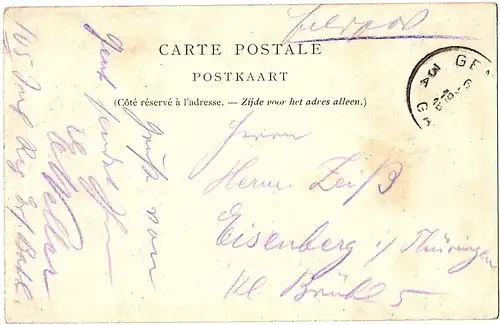 Feldpost
CARTE POSTALE
POSTKAART
(Côté réservé à l'adresse. — Zijde voor het adres alleen.)
Herrn
Herm. Zeiß
Eisenberg i/Thüringen
Kl. Brühl 5
Gruß von
Gent sendet
Weller
105 Inf Reg
GE
3A GA